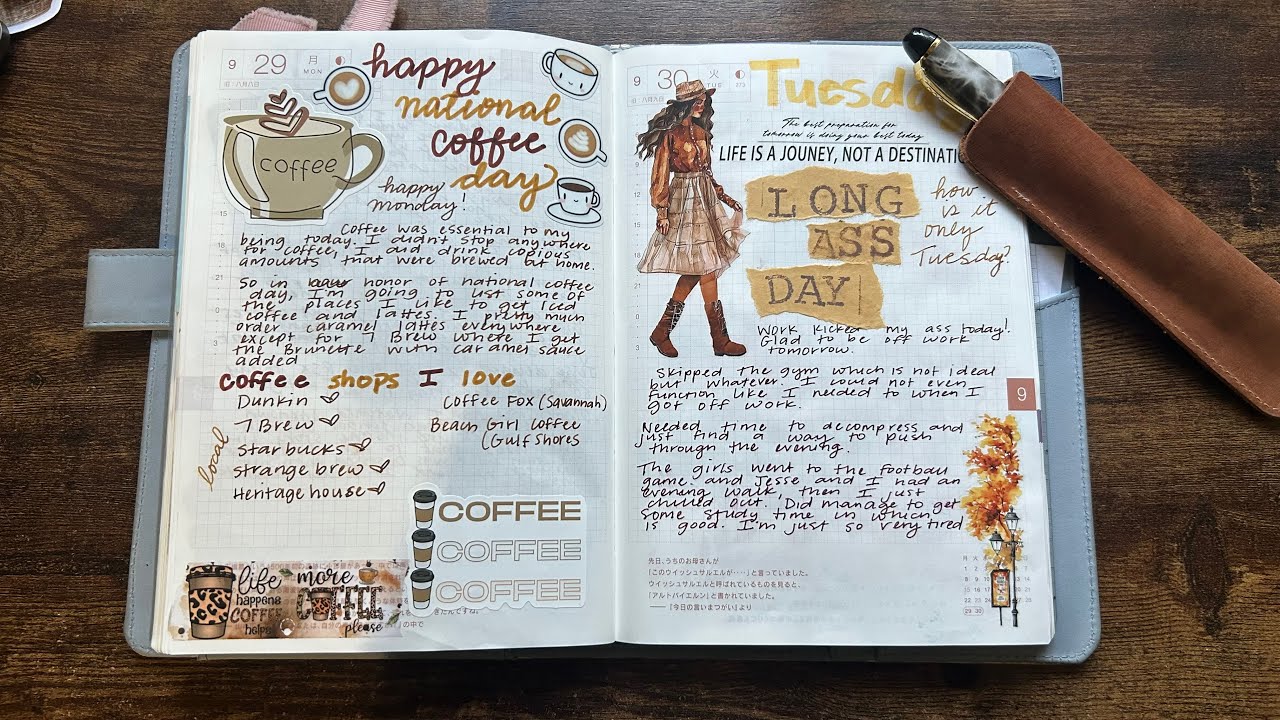 9 29 月
MON
happy
national
coffee
day
coffee
happy
monday!
Coffee was essential to my
being today. I didn't stop anywhere
for coffee, I did drink copious
amounts that were brewed at home.
So in honor of national coffee
day, I'm going to list some of
the places I like to get iced
coffee and lattes. I pretty much
order caramel lattes everywhere
except for 7 Brew where I get
the Brunette with caramel sauce
added
coffee shops I love
local
Dunkin
7 Brew
Starbucks
strange brew
Heritage house
Coffee Fox (Savannah)
Beach Girl Coffee
(Gulf Shores
COFFEE
COFFEE
COFFEE
life
happens
COFFEE
helps
more
COFFEE
please
9 30 火
Tuesda
The best preparation for
tomorrow is doing your best today
LIFE IS A JOUNEY, NOT A DESTINATIO
LONG
ASS
DAY
how
is it
only
Tuesday?
Work kicked my ass today!
Glad to be off work
tomorrow.
Skipped the gym which is not ideal
but whatever. I could not even
function like I needed to when I
got off work.
Needed time to decompress and
just find a way to push
through the evening.
The girls went to the football
game and Jesse and I had an
evening walk, then I just
chilled out. Did manage to get
some study time in which
is good. I'm just so very tired
9
先日、うちのお母さんが
「このウイッシュサルエルが・・・・」と言っていました。
ウイッシュサルエルと呼ばれているものを見ると、
「アルトバイエルン」と書かれていました。
──『今日の言いまつがい』より